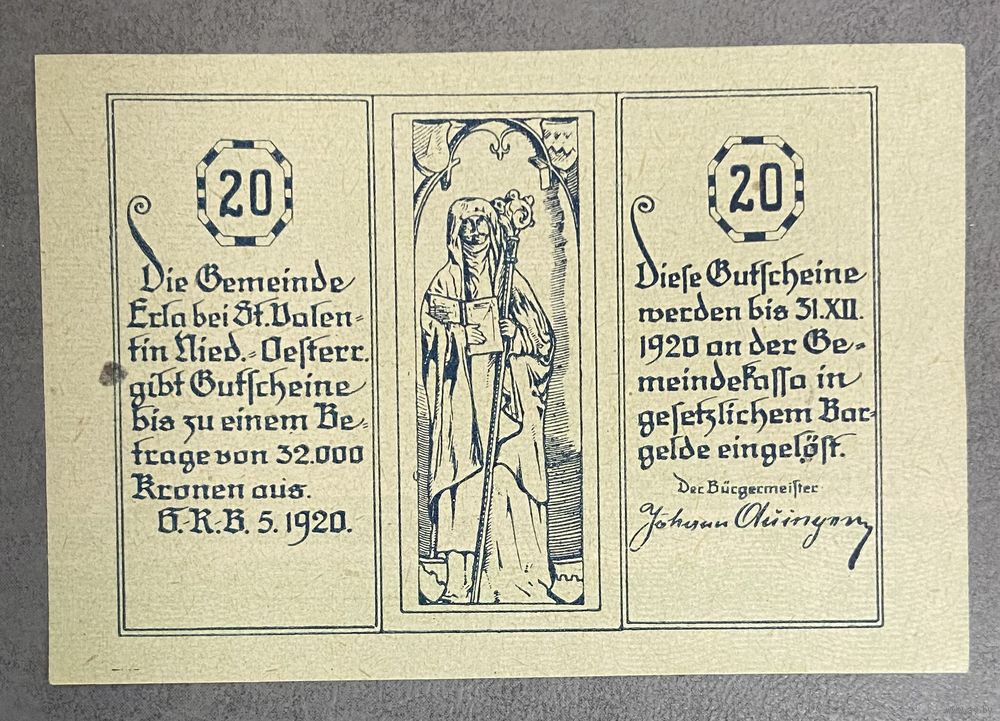 20
Die Gemeinde
Erla bei St. Valen=
tin Nied.=Oesterr.
gibt Gutscheine
bis zu einem Be=
trage von 32.000
Kronen aus.
G.-R.-B. 5. 1920.
20
Diese Gutscheine
werden bis 31.XII.
1920 an der Ge=
meindekassa in
gesetzlichem Bar=
gelde eingelöst.
Der Bürgermeister
Johann